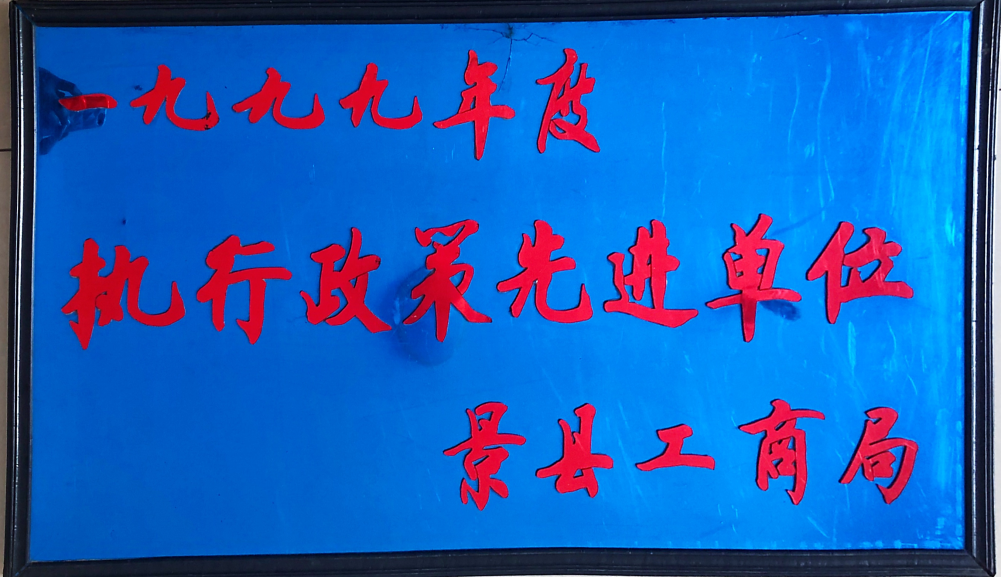 一九九九年度
执行政策先进单位
景县工商局